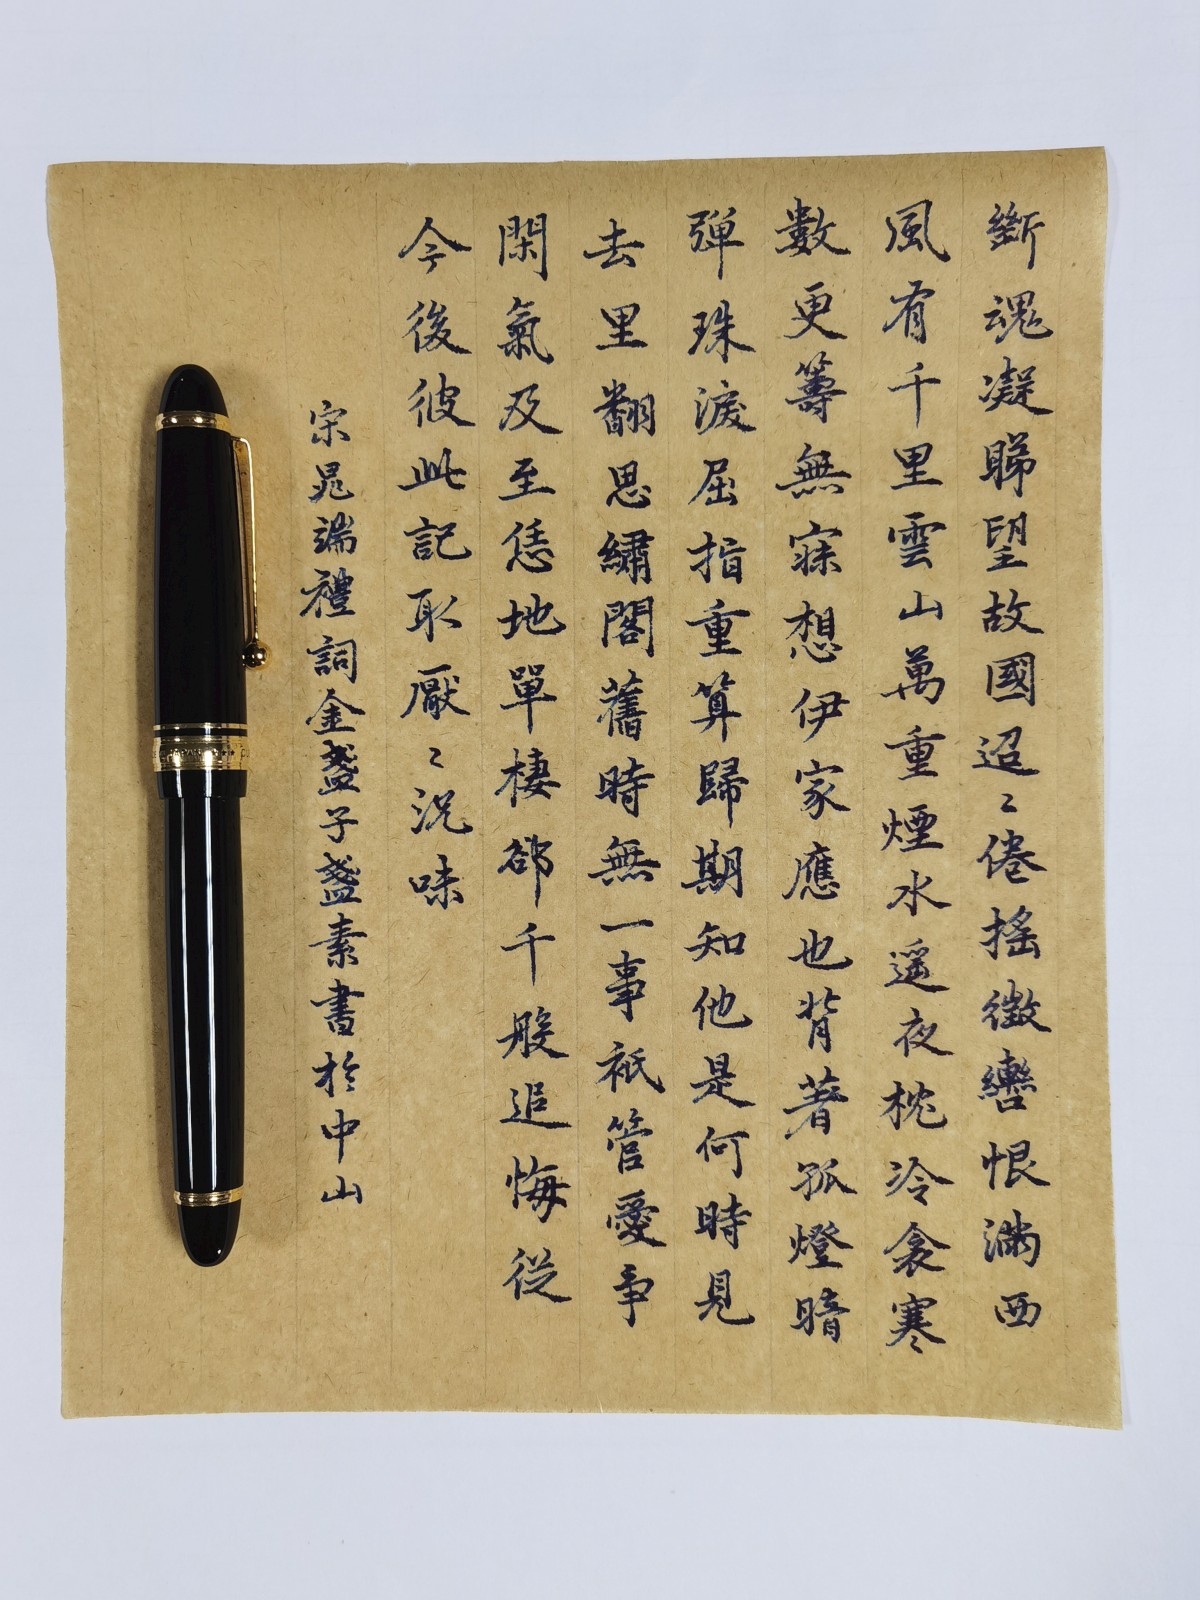 斷魂凝睇望故國迢〻倦摇徵轡恨滿西
風有千里雲山萬重煙水遥夜枕冷衾寒
數更籌無寐想伊家應也背著孤燈暗
弹珠淚屈指重算歸期知他是何時見
去里翻思繡閣舊時無一事衹管愛事
閑氣及至恁地單棲郤千般追悔從
今後彼此記取厭〻況味
宋晁端禮詞金盞子盞素書於中山